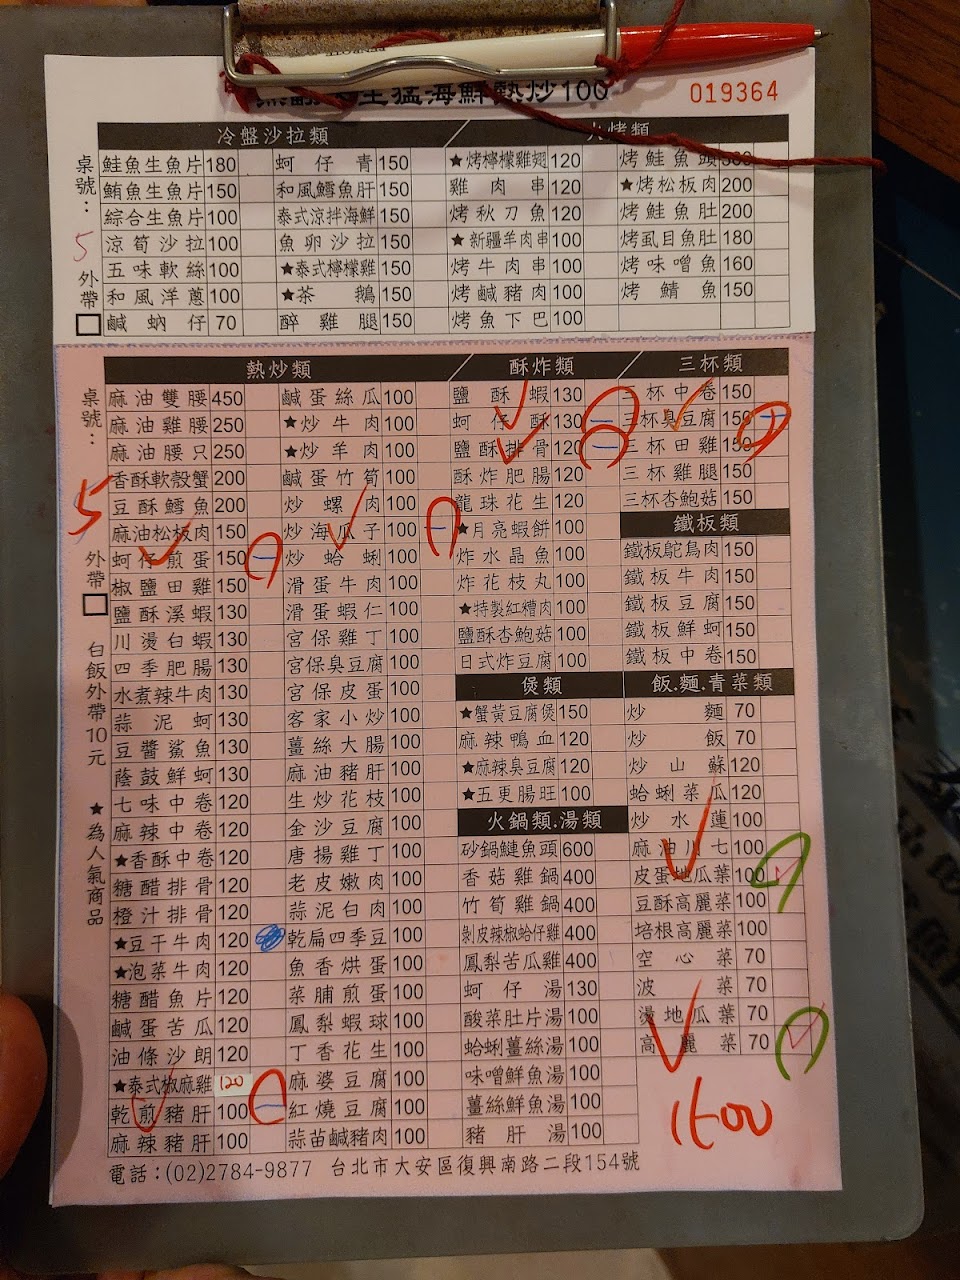 生猛海鮮熱炒100
019364
冷盤沙拉類
火烤類
桌號: 5
外帶
鮭魚生魚片 180
鮪魚生魚片 150
綜合生魚片 100
涼筍沙拉 100
五味軟絲 100
和風洋蔥 100
鹹蚋仔 70
蚵仔青 150
和風鱈魚肝 150
泰式涼拌海鮮 150
魚卵沙拉 150
★泰式檸檬雞 150
★茶鵝 150
醉雞腿 150
★烤檸檬雞翅 120
雞肉串 120
烤秋刀魚 120
★新疆羊肉串 100
烤牛肉串 100
烤鹹豬肉 100
烤魚下巴 100
烤鮭魚頭
★烤松板肉 200
烤鮭魚肚 200
烤虱目魚肚 180
烤味噌魚 160
烤鯖魚 150
桌號: 5
外帶
白飯外帶10元
★為人氣商品
熱炒類
麻油雙腰 450
麻油雞腰 250
麻油腰只 250
香酥軟殼蟹 200
豆酥鱈魚 200
麻油松板肉 150
蚵仔煎蛋 150 一
椒鹽田雞 150
鹽酥溪蝦 130
川燙白蝦 130
四季肥腸 130
水煮辣牛肉 130
蒜泥蚵 130
豆醬鯊魚 130
蔭鼓鮮蚵 130
七味中卷 120
麻辣中卷 120
★香酥中卷 120
糖醋排骨 120
橙汁排骨 120
★豆干牛肉 120
★泡菜牛肉 120
糖醋魚片 120
鹹蛋苦瓜 120
油條沙朗 120
★泰式椒麻雞 120
乾煎豬肝 100 一
麻辣豬肝 100
鹹蛋絲瓜 100
★炒牛肉 100
★炒羊肉 100
鹹蛋竹筍 100
炒螺肉 100
炒海瓜子 100 一
炒蛤蜊 100
滑蛋牛肉 100
滑蛋蝦仁 100
宮保雞丁 100
宮保臭豆腐 100
宮保皮蛋 100
客家小炒 100
薑絲大腸 100
麻油豬肝 100
生炒花枝 100
金沙豆腐 100
唐揚雞丁 100
老皮嫩肉 100
蒜泥白肉 100
乾扁四季豆 100
魚香烘蛋 100
菜脯煎蛋 100
鳳梨蝦球 100
丁香花生 100
麻婆豆腐 100
紅燒豆腐 100
蒜苗鹹豬肉 100
酥炸類
鹽酥蝦 130
蚵仔酥 130 一
鹽酥排骨 120 一
酥炸肥腸 120
龍珠花生 120
★月亮蝦餅 100
炸水晶魚 100
炸花枝丸 100
★特製紅糟肉 100
鹽酥杏鮑菇 100
日式炸豆腐 100
煲類
★蟹黃豆腐煲 150
麻辣鴨血 120
★麻辣臭豆腐 120
★五更腸旺 100
火鍋類.湯類
砂鍋鰱魚頭 600
香菇雞鍋 400
竹筍雞鍋 400
剝皮辣椒蛤仔雞 400
鳳梨苦瓜雞 400
蚵仔湯 130
酸菜肚片湯 100
蛤蜊薑絲湯 100
味噌鮮魚湯 100
薑絲鮮魚湯 100
豬肝湯 100
三杯類
三杯中卷 150
三杯臭豆腐 150 一
三杯田雞 150
三杯雞腿 150
三杯杏鮑菇 150
鐵板類
鐵板鴕鳥肉 150
鐵板牛肉 150
鐵板豆腐 150
鐵板鮮蚵 150
鐵板中卷 150
飯.麵.青菜類
炒麵 70
炒飯 70
炒山蘇 120
蛤蜊菜瓜 120
炒水蓮 100
麻油川七 100
皮蛋地瓜葉 100
豆酥高麗菜 100
培根高麗菜 100
空心菜 70
波菜 70
燙地瓜葉 70
高麗菜 70
電話:(02)2784-9877 台北市大安區復興南路二段154號